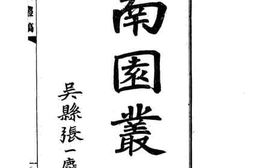 南園叢
吳縣張一